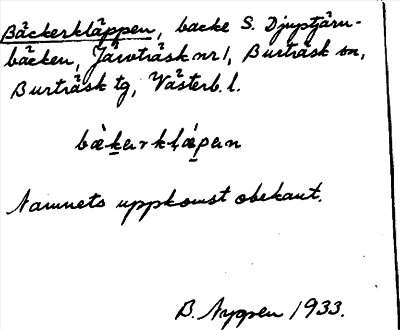 Bäckerkläppen, backe S. Djuptjärn-
bäcken, Järvträsk nr 1, Burträsk sn,
Burträsk tg, Västerb. l.
bäkarkläpan
Namnets uppkomst obekant.
B. Nygren 1933.